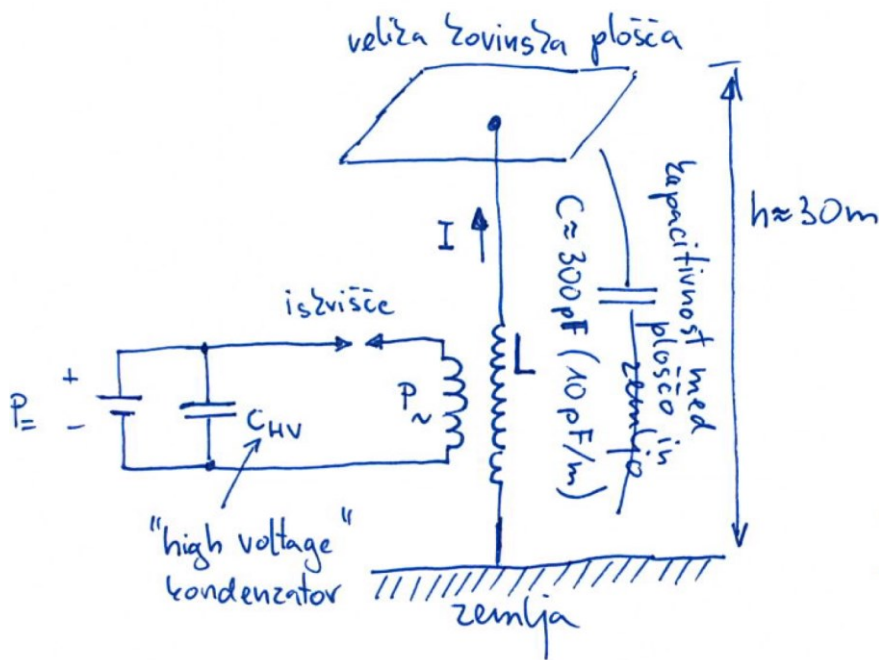 velika kovinska plošča
I
L
C ≈ 300 pF (10 pF/m)
kapacitivnost med
ploščo in
zemljo
h ≈ 30 m
iskrišče
P=
+
-
C_HV
P~
"high voltage"
kondenzator
zemlja